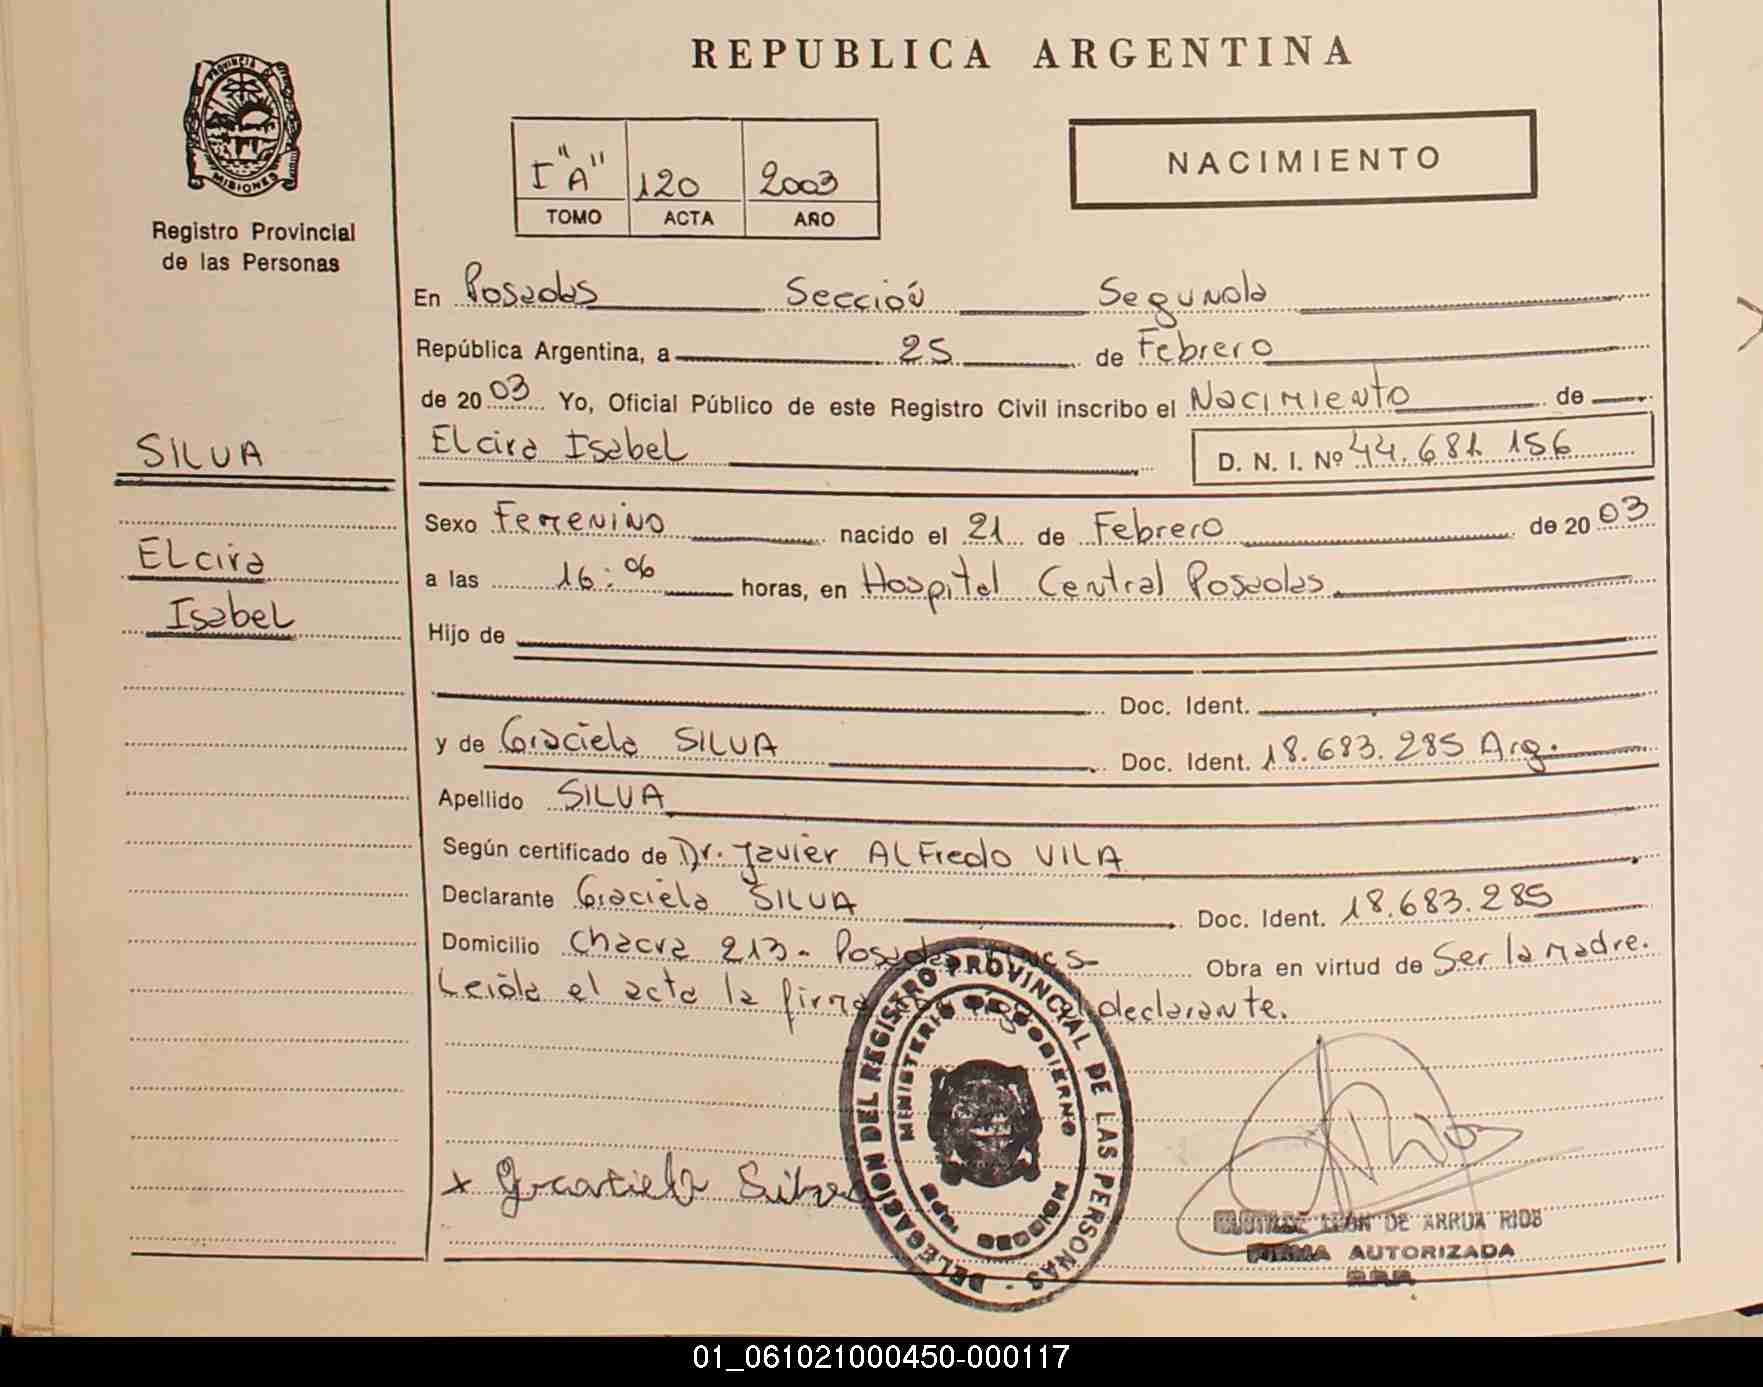 REPUBLICA ARGENTINA
PROVINCIA DE
MISIONES
Registro Provincial
de las Personas
I "A" 120 2003
TOMO ACTA AÑO
NACIMIENTO
En Posadas Sección Segunda
República Argentina, a 25 de Febrero
de 2003 Yo, Oficial Público de este Registro Civil inscribo el Nacimiento de
SILVA
Elcira Isabel D. N. I. Nº 44.681 156
Sexo Femenino nacido el 21 de Febrero de 2003
Elcira
a las 16:06 horas, en Hospital Central Posadas
Isabel
Hijo de
Doc. Ident.
y de Graciela SILVA Doc. Ident. 18.683.285 Arg.
Apellido SILVA
Según certificado de Dr. Javier Alfredo VILA
Declarante Graciela SILVA Doc. Ident. 18.683.285
Domicilio Chacra 213- Posadas Obra en virtud de Ser la madre.
Leida el acta la firma declarante.
DELEGACION DEL REGISTRO PROVINCIAL DE LAS PERSONAS -
MINISTERIO DE GOBIERNO
x Graciela Silva
DE ARRUA RIOS
FIRMA AUTORIZADA
R.P.P.
01_061021000450-000117